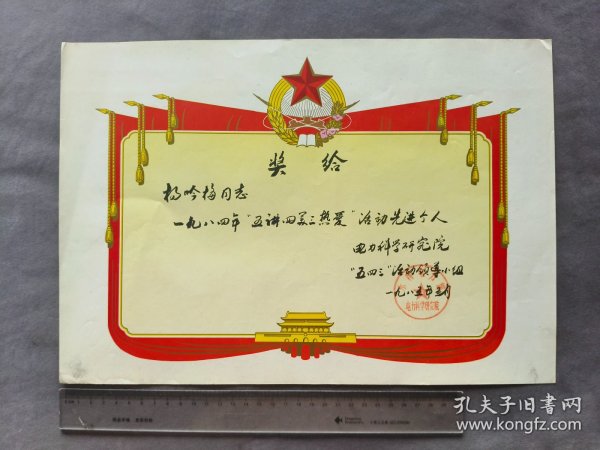 奖给
杨吟梅同志
一九八四年“五讲四美三热爱”活动先进个人
电力科学研究院
“五四三”活动领导小组
一九八五年三月
孔夫子旧书网
www.kongfz.com